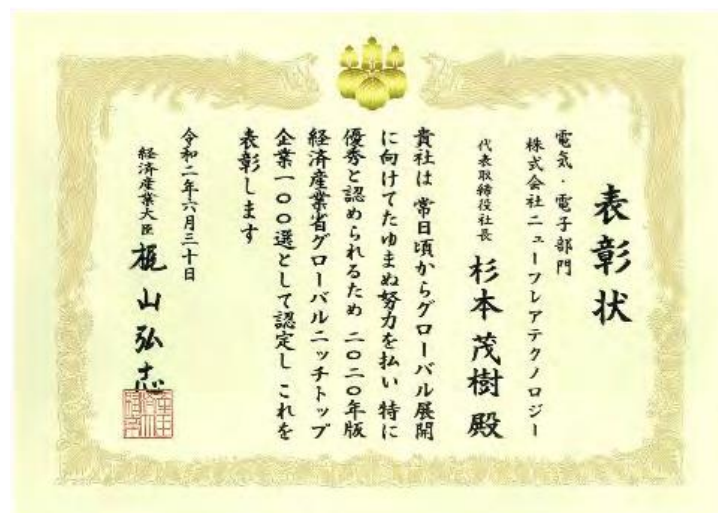 表彰状
電気・電子部門
株式会社ニューフレアテクノロジー
代表取締役社長 杉本茂樹殿
貴社は 常日頃からグローバル展開
に向けてたゆまぬ努力を払い 特に
優秀と認められるため 二〇二〇年版
経済産業省グローバルニッチトップ
企業一〇〇選として認定し これを
表彰します
令和二年六月三十日
経済産業大臣 梶山弘志